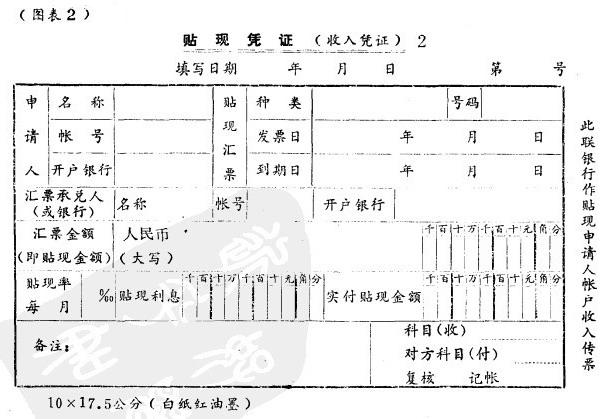 (图表2)
贴现凭证(收入凭证) 2
填写日期 年 月 日 第 号
申请人 名称 贴现汇票 种类 号码
帐号 发票日 年 月 日
开户银行 到期日 年 月 日
汇票承兑人(或银行) 名称 帐号 开户银行
汇票金额(即贴现金额) 人民币(大写) 千百十万千百十元角分
贴现率每月 ‰ 贴现利息 千百十万千百十元角分 实付贴现金额 千百十万千百十元角分
备注: 科目(收)
对方科目(付)
复核 记帐
此联银行作贴现申请人帐户收入传票
10×17.5公分(白纸红油墨)